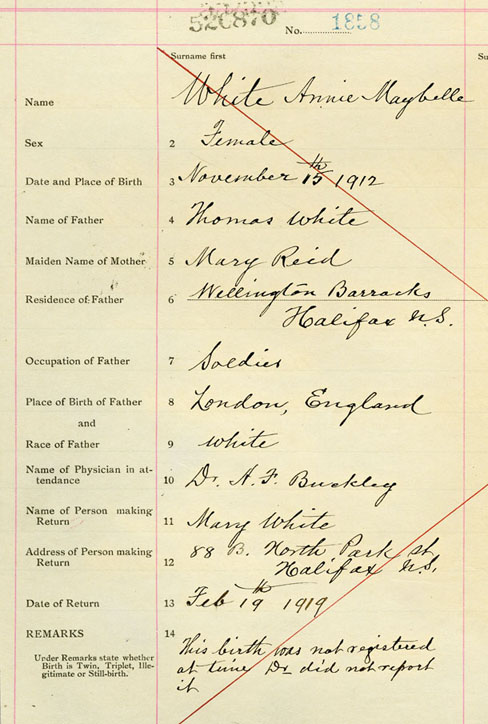 52C870
No. 1858
Surname first
Su
Name White Annie Maybelle
Sex 2 Female
Date and Place of Birth 3 November 15th 1912
Name of Father 4 Thomas White
Maiden Name of Mother 5 Mary Reid
Residence of Father 6 Wellington Barracks
Halifax N.S.
Occupation of Father 7 Soldier
Place of Birth of Father 8 London, England
and
Race of Father 9 White
Name of Physician in at-
tendance 10 Dr. A. F. Buckley
Name of Person making
Return 11 Mary White
Address of Person making 88 B. North Park St
Return 12 Halifax N.S.
Date of Return 13 Feb 19th 1919
REMARKS 14
This birth was not registered
Under Remarks state whether
Birth is Twin, Triplet, Ille-
gitimate or Still-birth.
at time Dr did not report
it